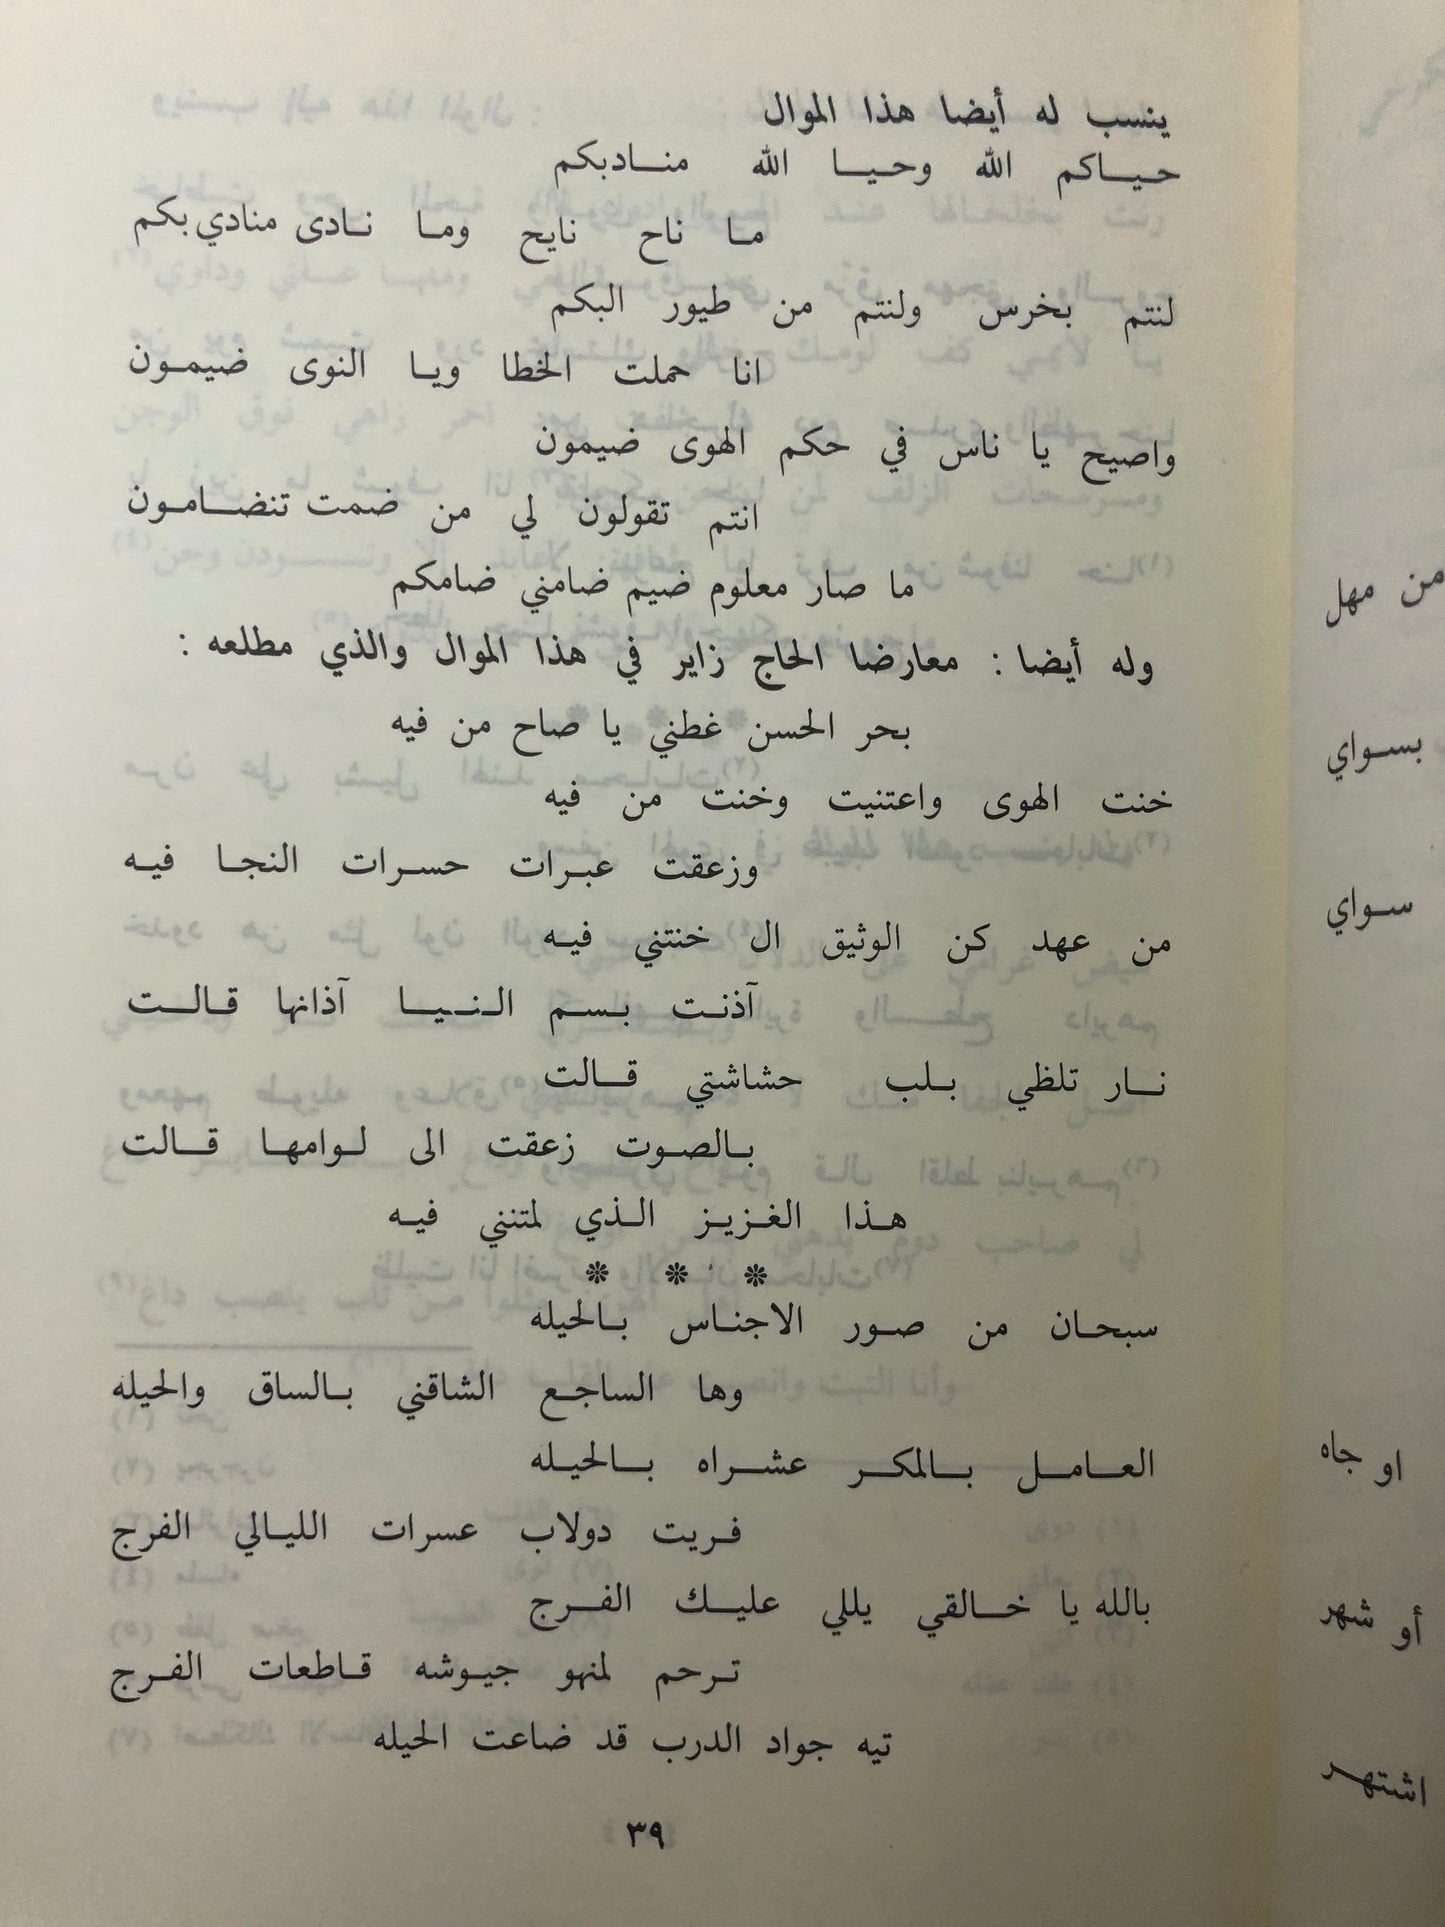 ينسب له أيضا هذا الموال
حيـاكم الله وحيـا الله منـادبكم
مـا ناح نايح ومـا نـادى منادي بكم
لنتم بخرس ولنتم من طيور البكم
انا حملت الخطا ويـا النوى ضيمـون
واصيح يا ناس في حكم الهوى ضيمون
انتم تقولون لي من ضمت تنضـامـون
ما صار معلوم ضيم ضامني ضامكم
وله أيضا : معارضا الحاج زاير في هذا الموال والذي مطلعه :
بحر الحسن غطني يا صاح من فيه
خنت الهوى واعتنيت وخنت من فيه
وزعقت عبـرات حسـرات النجـا فيـه
من عهد كن الوثيق ال خنتني فيـه
آذنـت بـسـم الـنـيـا آذانها قـالـت
نـار تلظي بـلب حشاشتي قـالت
بـالصـوت زعقت الى لـوامهـا قـالت
هـذا الغـزيـز الـذي لمتنني فيـه
❊ ❊ ❊
سبحـان من صـور الاجنـاس بـالحيله
وها الساجـع الشاقني بـالساق والحيله
العـامـل بـالمكـر عشـراه بـالحيـله
فـريت دولاب عسرات الليـالي الفرج
بالله يا خـالقي يللي عليـك الفـرج
تـرحم لمنهو جيـوشه قـاطعات الفـرج
تيه جواد الدرب قد ضاعت الحيله
٣٩
من مهل
بسـواي
سـواي
او جاه
أو شهر
اشتهر